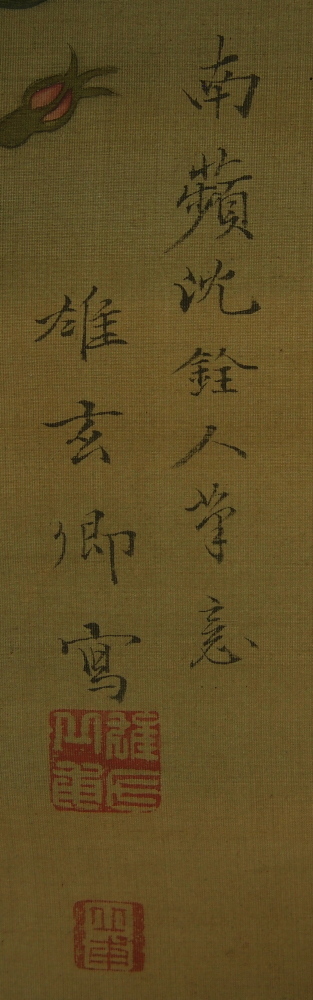 南蘋沈銓人筆意
雄玄卿寫